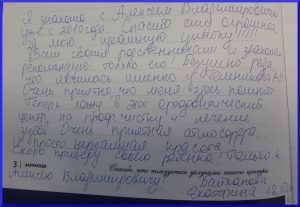 Я знакома с Алексеем Владимировичем
уже с 2010 года. Спасибо ему огромное
за мою идеальную улыбку!!!!!
Всем своим родственникам и знакомым
рекомендую только его! Безумно рада,
что лечилась именно у
Очень приятно, что меня здесь помнят.
Теперь хожу в этот ортодонтический
центр, на проф. чистку и лечение
зубов. Очень приятная атмосфера,
и просто нереальная красота.
Скоро приведу своего ребенка! Только к
3 Спасибо, что пользуетесь услугами нашего центра
Алексею Владимировичу!
Екатерина